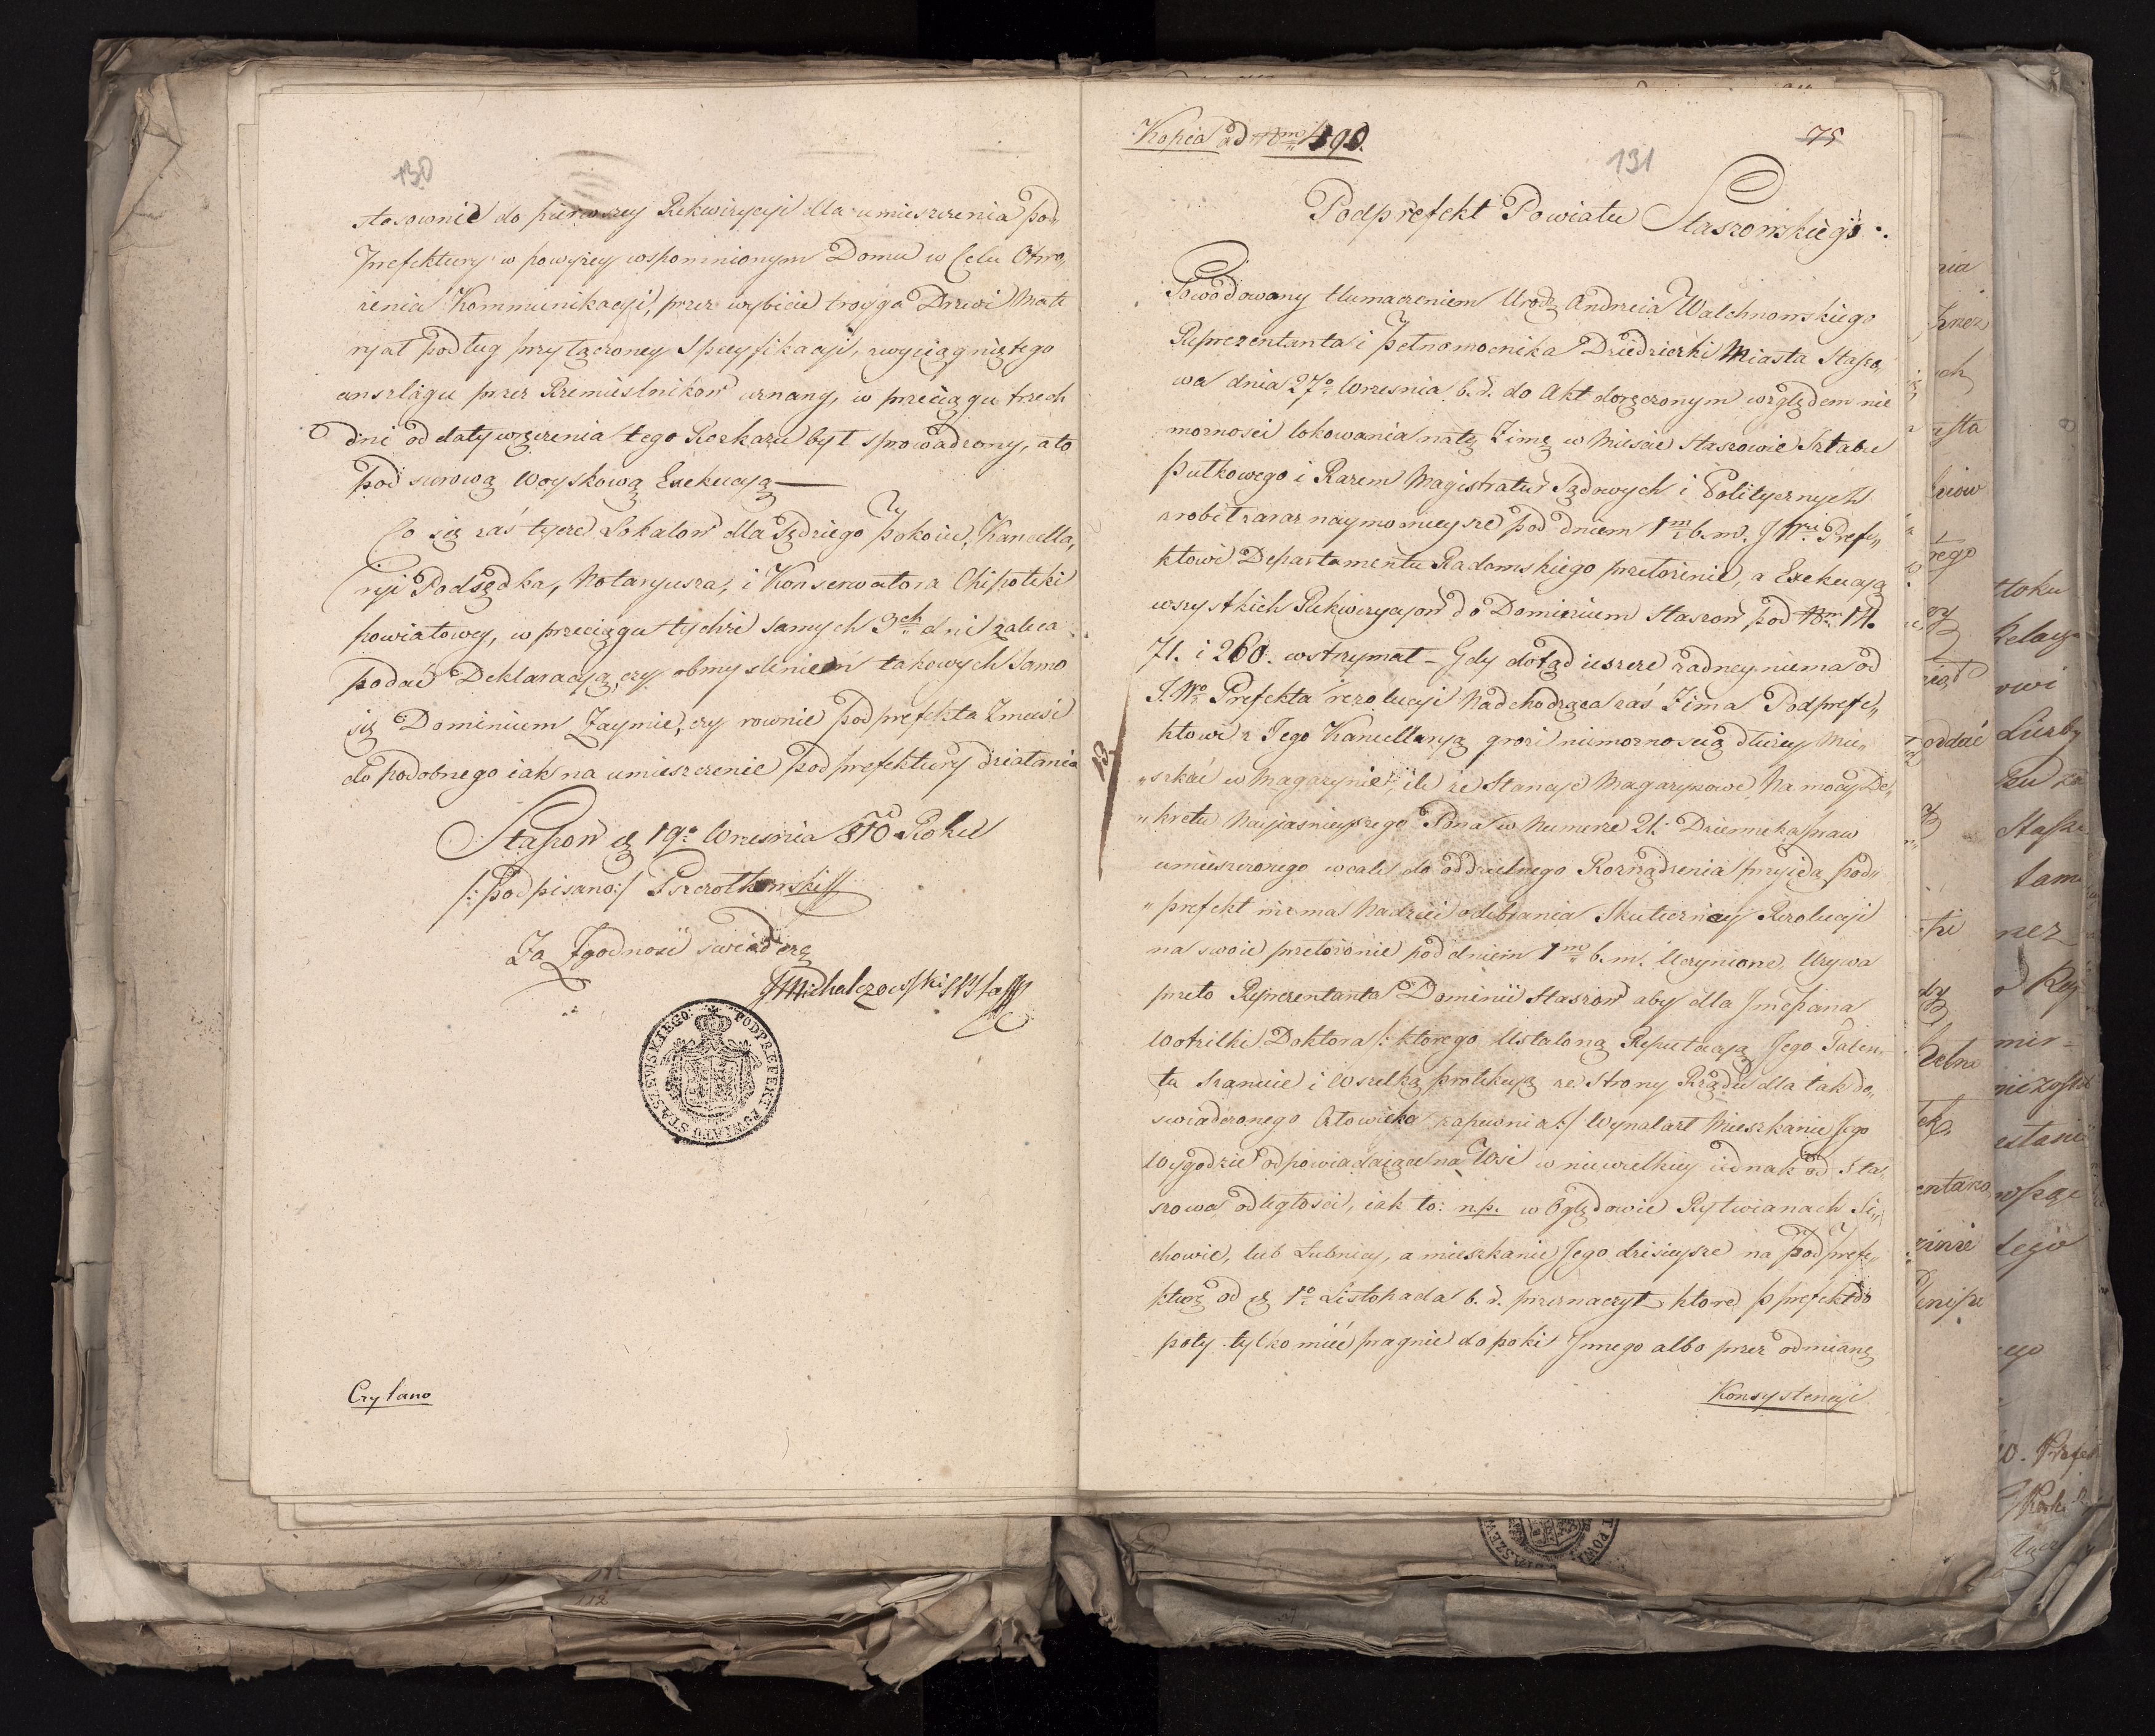 130
stosownie do pierwszey Rekwizycyi dla umieszczenia pod
Prefektury w powyzey wspomnionym Domu w Celu Otwo,,
rzenia Kommunikacyi, przez wybicie troyga Drzwi Mate
ryał podług przyłączoney Specyfikacyi, z wyciągniętego
anszlagu przez Rzemieslnikow uznany, w przeciągu trzech
dni od daty wręczenia tego Rozkazu był sprowadzony, a to
pod surową Woyskową Exekucyą —
Co się zaś tycze Lokalow dla Sędziego Pokoiu, Kancella,
ryi Podsędka, Notaryusza, i Konserwatora Chipoteki
powiatowey, w przeciągu tychże samych 3ch dni zaleca
podać Deklaracyą, czy obmysleniem takowych samo
się Dominium Zaymie, czy rownie podprefekta Zmusi
do podobnego iak na umieszczenie podprefektury działania
Staszow d. 19o Wrzesnia 810 Roku
/: podpisano :/ Pszczołkowski
Za Zgodnosć swiadczę
Michalczowski
PODPREFEKT POWIATU STASZEWSKIEGO
Czytano
Kopia ad Num 490.
75
131
Podprefekt Powiatu Staszowskiego.
Powodowany tlumaczeniem Urodz Andrzeia Walchnowskiego
Reprezentanta i pełnomocnika Dziedziczki Miasta Staszo,
wa dnia 27o Wrzesnia b. r. do Akt doręczonym względem nie
moznosci lokowania na tę Zimę w Miescie Staszowie Sztabu
pułkowego i Razem Magistratur Sądowych i Politycznych
zrobił zaraz naymocnieysze pod dniem 1m b. m. JWmu Prefe,,
ktowi Departamentu Radomskiego przełozenie, a Exekucyą
wszystkich Rekwizycyow do Dominium Staszow pod Nrm 14.
71. i 260. wstrzymał – Gdy dotąd ieszcze zadney niema od
J.Wo Prefekta rezolucyi Nadchodząca zaś Zima Podprefe,,
ktowi z Jego Kancellaryą grozi niemoznoscią dłuzey Mie,,
13
szkać w Magazynie, ile ze Stancye Magazynowe Na mocy De,,
kretu Nayiasnieyszego Pana w Numerze 21. Dziennika praw
umieszczonego wcale do oddzielnego Rozrządzenia przyida, pod,,
prefekt niema Nadziei odebrania Skuteczney Rezolucyi
na swoie przełozenie pod dniem 1mo b. m. Uczynione Wzywa
przeto Reprezentanta Dominii Staszow aby dla Jmcpana
Wotzilki Doktora /: ktorego Ustaloną Reputacyą Jego Talen,
ta Szanuie i Wszelką protekcyą ze strony Rządu dla tak do,
swiadczonego Człowieka zapewnia :/ Wynalazł Mieszkanie Jego
Wygodzie odpowiadaiące na Wsi w niewielkiey iednak od Sta,
szowa odległosci, iak to: n.p. w Oględowie Rytwianach Si,,
chowie, lub Łubnicy, a mieszkanie Jego dzisieysze na podprefe,,
kturę od d. 1o Listopada b. r. przeznaczył, ktore pprefekt do
poty tylko mieć pragnie dopoki Jnnego albo przez odmianę
Konsystencyi